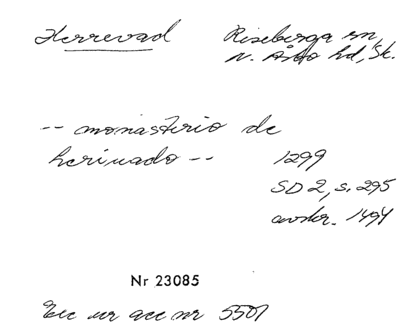 Herrevad Riseberga sn,
N. Åsbo hd, Sk.
-- monasterio de
heriuado -- 1299
SD 2, s. 295
avskr. 1494
Nr 23085
Exc ur acc nr 5501